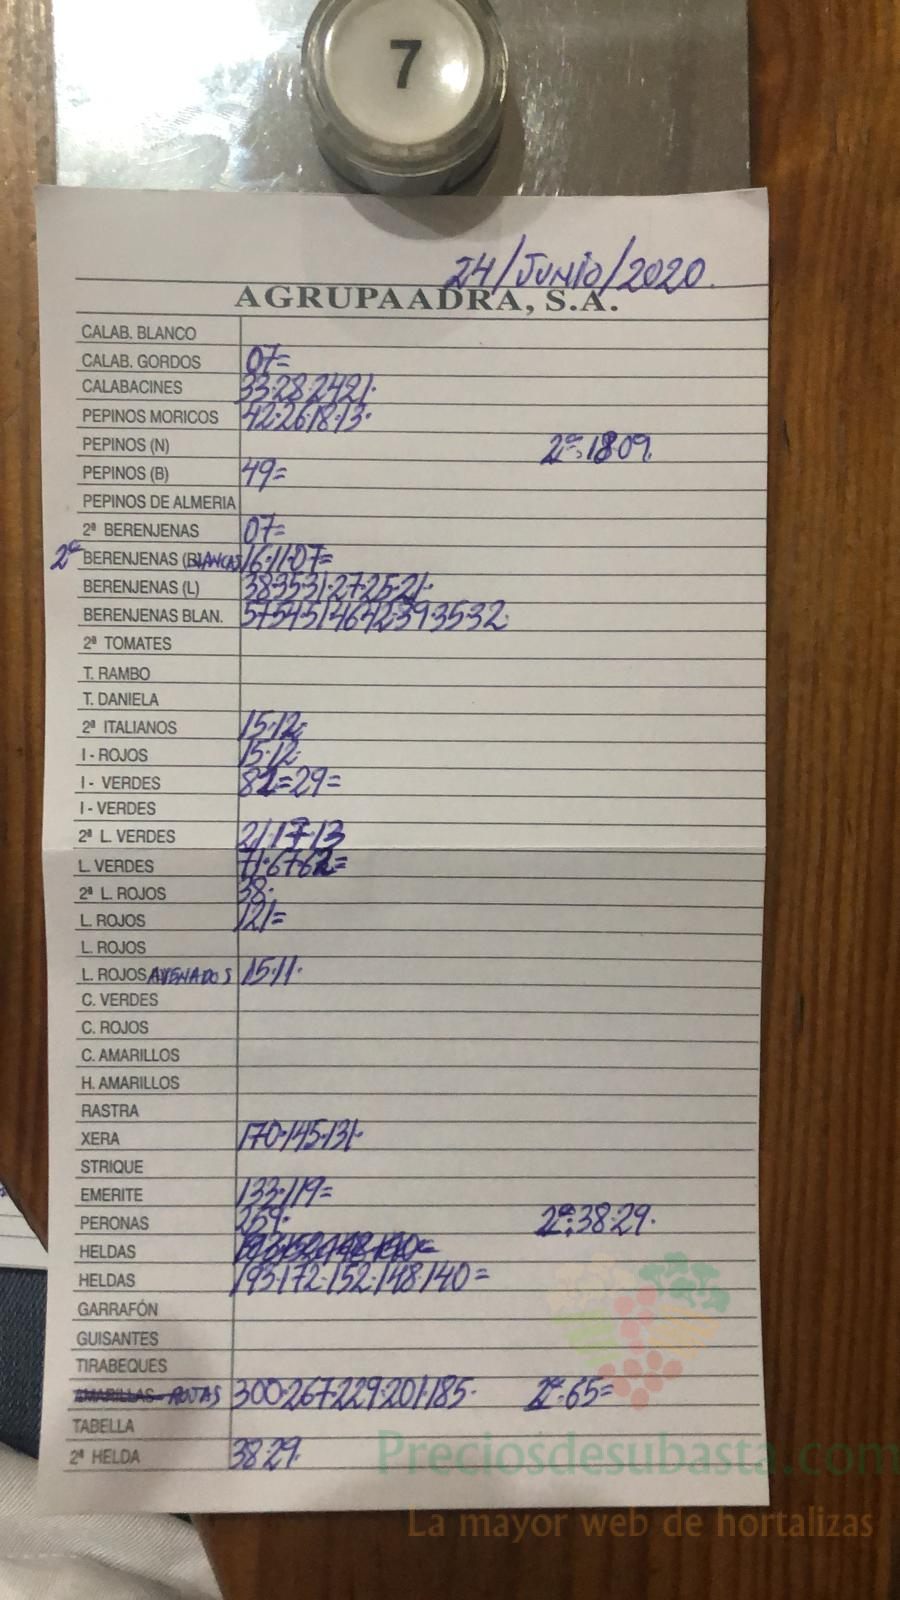 7
24/JUNIO/2020.
AGRUPAADRA, S.A.
CALAB. BLANCO
CALAB. GORDOS 07=
CALABACINES 33·28·24·21·
PEPINOS MORICOS 42·26·18·13·
PEPINOS (N) 2ª: 18·09.
PEPINOS (B) 49=
PEPINOS DE ALMERIA
2ª BERENJENAS 07=
2ª BERENJENAS (BLANCAS 16·11·07=
BERENJENAS (L) 38·35·31·27·25·21·
BERENJENAS BLAN. 57·54·51·46·42·39·35·32·
2ª TOMATES
T. RAMBO
T. DANIELA
2ª ITALIANOS 15·12·
I - ROJOS 15·12·
I - VERDES 82=29=
I - VERDES
2ª L. VERDES 21·17·13
L. VERDES 71·67·62=
2ª L. ROJOS 38·
L. ROJOS 121=
L. ROJOS
L. ROJOS AVENADOS 15·11·
C. VERDES
C. ROJOS
C. AMARILLOS
H. AMARILLOS
RASTRA
XERA 170·145·131·
STRIQUE
EMERITE 133·119=
PERONAS 259· 2ª: 38·29·
HELDAS
HELDAS 193·172·152·148·140=
GARRAFÓN
GUISANTES
TIRABEQUES
AMARILLAS ROJAS 300·267·229·201·185· 2ª: 65=
TABELLA
2ª HELDA 38·29·
Preciosdesubasta.com
La mayor web de hortalizas